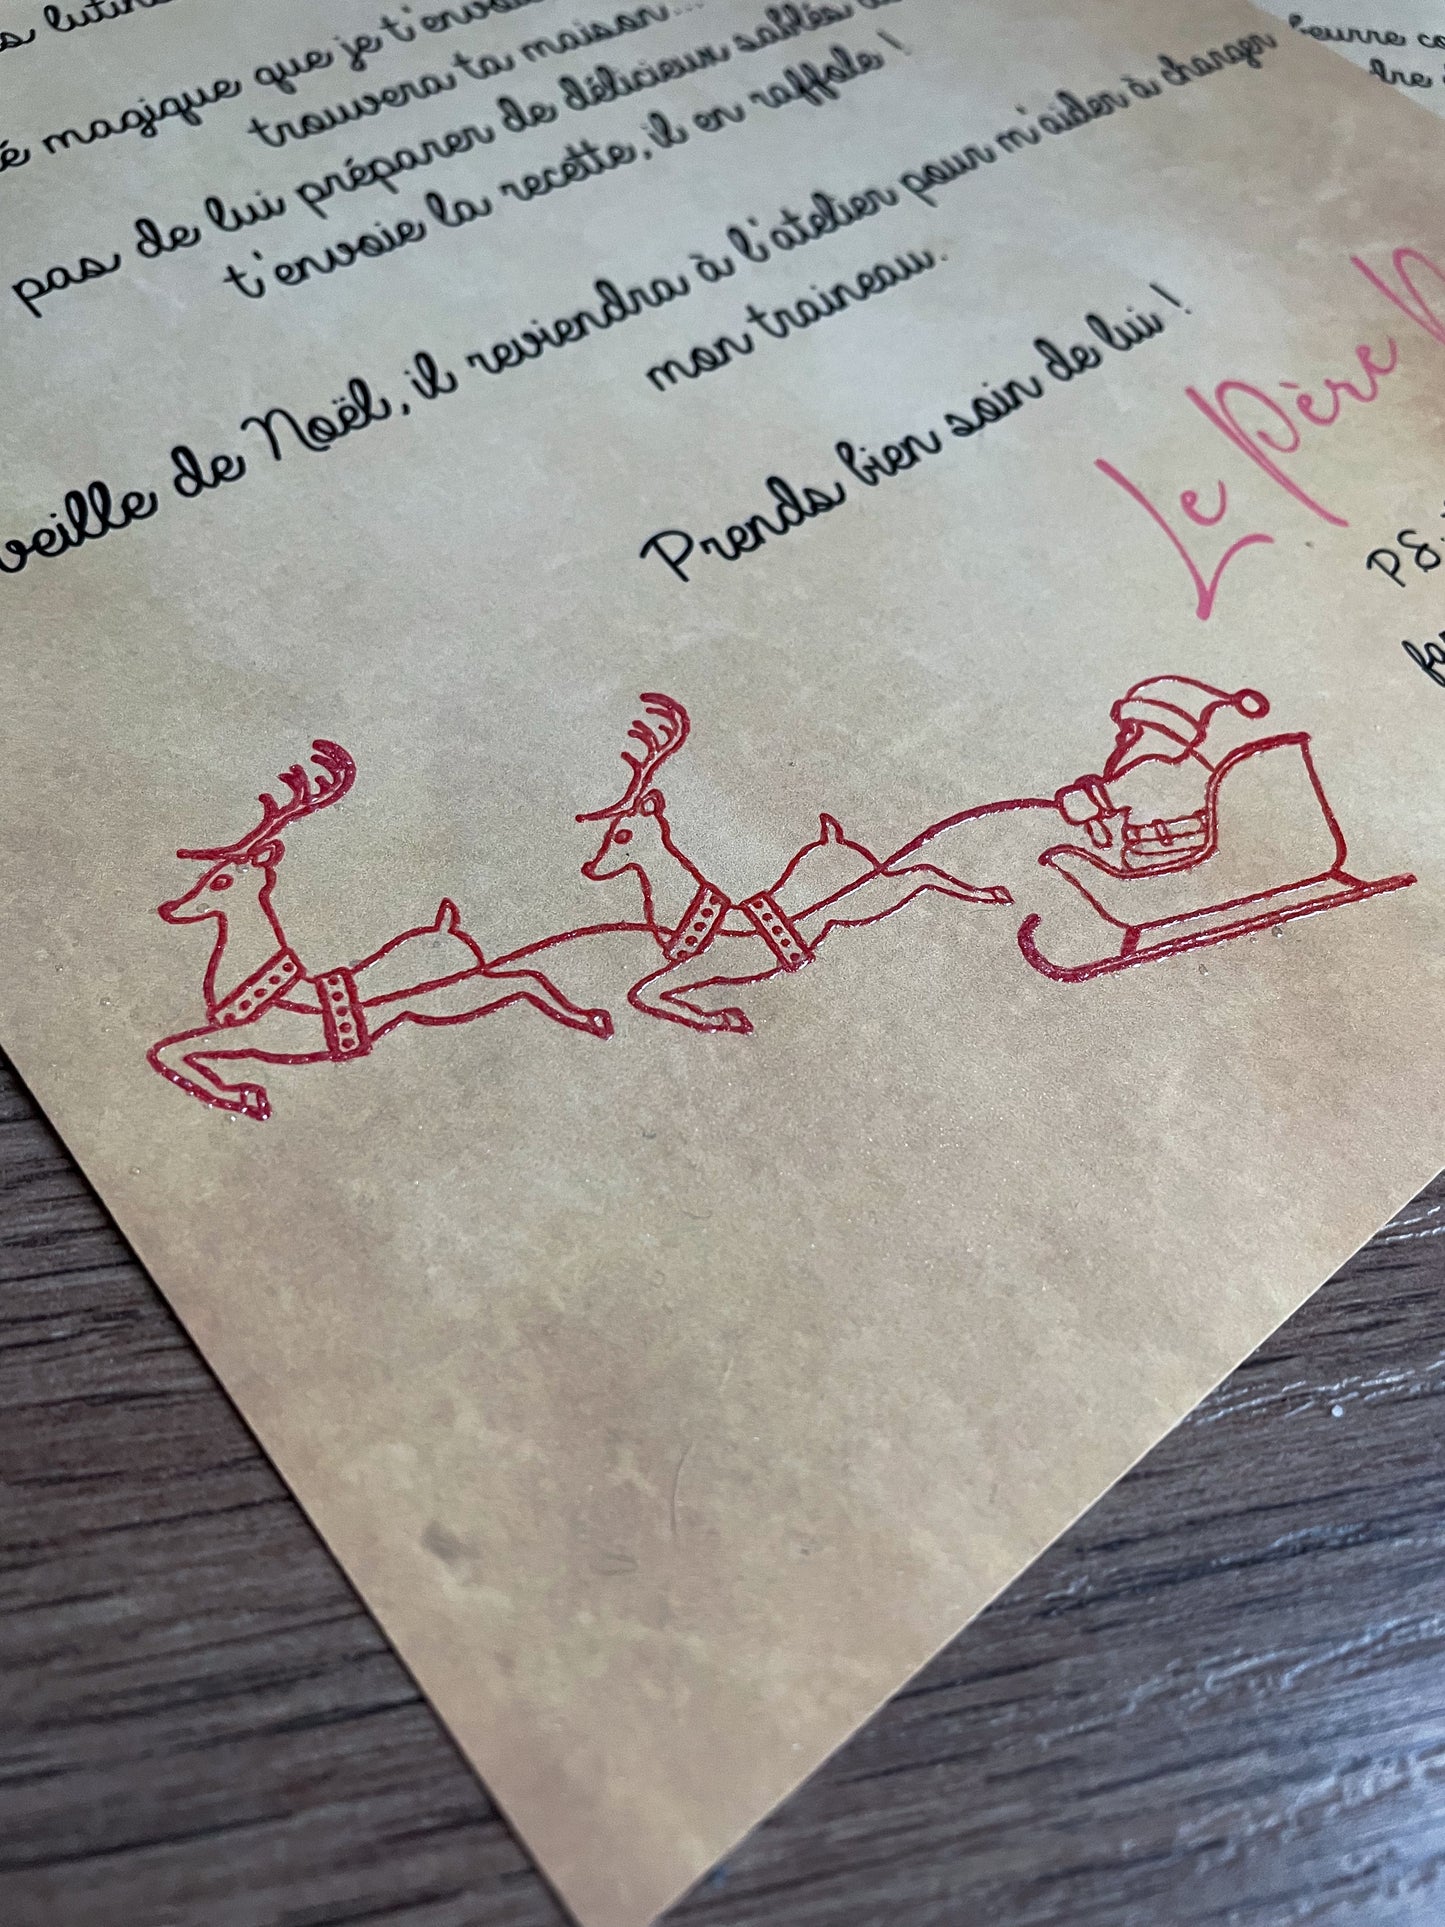 lutin
magique que je t'envoi
trouvera ta maison...
pas de lui préparer de délicieux sablés
t'envoie la recette, il en raffole !
veille de Noël, il reviendra à l'atelier pour m'aider à charger
mon traineau.
Prends bien soin de lui !
Le Père N
PS